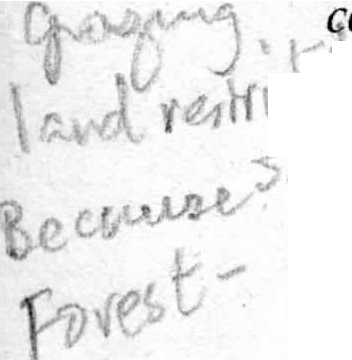 Grazing
land restri
Because
Forest-